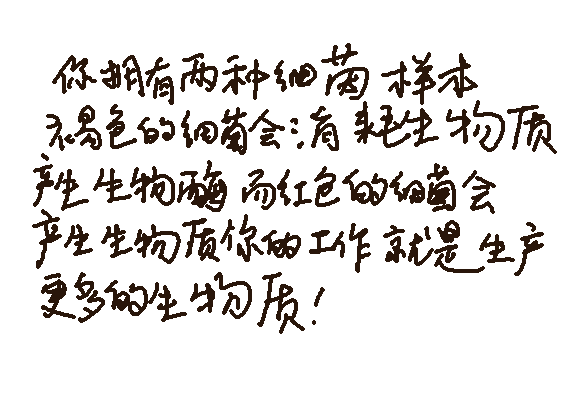 你拥有两种细菌样本
褐色的细菌会消耗生物质
产生生物酶而红色的细菌会
产生生物质你的工作就是生产
更多的生物质!